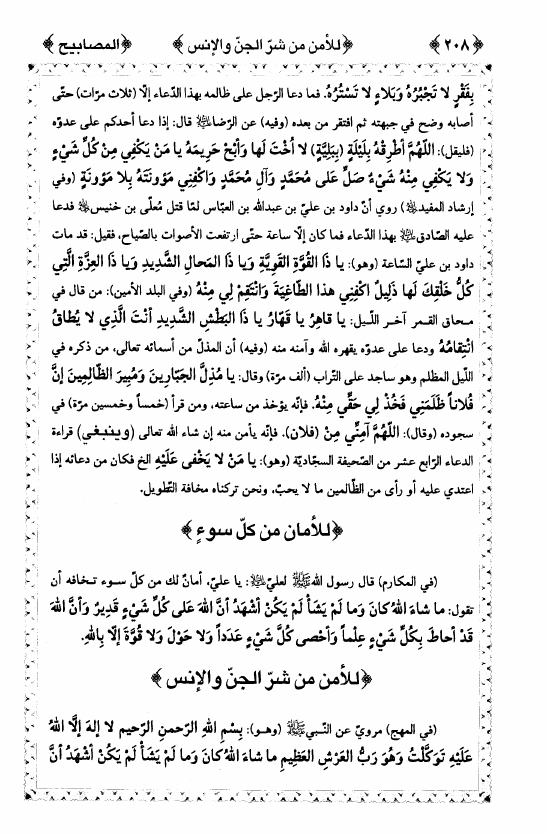 ﴿٢٠٨﴾ ﴿للأمن من شرّ الجنّ والإنس﴾ ﴿المصابيح﴾
بِفَقْرٍ لا تَجْبُرُهُ وَبَلاءٍ لا تَسْتُرُهُ. فما دعا الرّجل على ظالمه بهذا الدّعاء إلّا (ثلاث مرّات) حتّى
أصابه وضح في جبهته ثم افتقر من بعده (وفيه) عن الرّضاﷺ قال: إذا دعا أحدكم على عدوّه
(فليقل): اللّهُمَّ أطْرِقْهُ بِلَيْلَةٍ (بِبَلِيَّةٍ) لا أُخْتَ لَها وَأبِحْ حَرِيمَهُ يا مَنْ يَكْفِي مِنْ كُلِّ شَيْءٍ
وَلا يَكْفِي مِنْهُ شَيْءٌ صَلِّ عَلى مُحَمَّدٍ وَآلِ مُحَمَّدٍ وَاكْفِنِي مَؤونَتَهُ بِلا مَؤونَةٍ (وفي
إرشاد المفيد) روي أنّ داود بن عليّ بن عبدالله بن العبّاس لمّا قتل مُعلّى بن خنيس فدعا
عليه الصّادق بهذا الدّعاء فما كان إلّا ساعة حتّى ارتفعت الأصوات بالصّياح، فقيل: قد مات
داود بن عليّ السّاعة (وهو): يا ذَا القُوَّةِ القَوِيَّةِ وَيا ذَا المَحالِ الشَّدِيدِ وَيا ذَا العِزَّةِ الَّتِي
كُلُّ خَلْقِكَ لَها ذَلِيلٌ اكْفِنِي هذا الطّاغِيَةَ وَانْتَقِمْ لِي مِنْهُ (وفي البلد الأمين): من قال في
محاق القمر آخر اللّيل: يا قاهِرُ يا قَهّارُ يا ذَا البَطْشِ الشَّدِيدِ أنْتَ الَّذِي لا يُطاقُ
انْتِقامُهُ ودعا على عدوّه يقهره الله وآمنه منه (وفيه) أن المذلّ من أسمائه تعالى، من ذكره في
اللّيل المظلم وهو ساجد على التّراب (ألف مرّة) وقال: يا مُذِلَّ الجَبّارِينَ وَمُبِيرَ الظّالِمِينَ إنَّ
فُلاناً ظَلَمَنِي فَخُذْ لِي حَقِّي مِنْهُ. فإنّه يؤخذ من ساعته، ومن قرأ (خمساً وخمسين مرّة) في
سجوده (وقال): اللّهُمَّ آمِنِّي مِنْ (فلان). فإنّه يأمن منه إن شاء الله تعالى (وينبغي) قراءة
الدعاء الرّابع عشر من الصّحيفة السجّاديّة (وهو): يا مَنْ لا يَخْفى عَلَيْهِ الخ فكان من دعائه إذا
اعتدي عليه أو رأى من الظّالمين ما لا يحبّ، ونحن تركناه مخافة التّطويل.
﴿للأمان من كلّ سوءٍ﴾
(في المكارم) قال رسول اللهﷺ لعليّ: يا عليّ، أمانٌ لك من كلّ سوء تخافه أن
تقول: ما شاءَ اللهُ كانَ وَما لَمْ يَشَأْ لَمْ يَكُنْ أشْهَدُ أنَّ اللهَ عَلى كُلِّ شَيْءٍ قَدِيرٌ وَأنَّ اللهَ
قَدْ أحاطَ بِكُلِّ شَيْءٍ عِلْماً وَأحْصى كُلَّ شَيْءٍ عَدَداً وَلا حَوْلَ وَلا قُوَّةَ إلّا بِاللهِ.
﴿للأمن من شرّ الجنّ والإنس﴾
(في المهج) مرويّ عن النّبيﷺ (وهو): بِسْمِ اللهِ الرَّحمنِ الرَّحيمِ لا إلهَ إلَّا اللهُ
عَلَيْهِ تَوَكَّلْتُ وَهُوَ رَبُّ العَرْشِ العَظِيمِ ما شاءَ اللهُ كانَ وَما لَمْ يَشَأْ لَمْ يَكُنْ أشْهَدُ أنَّ